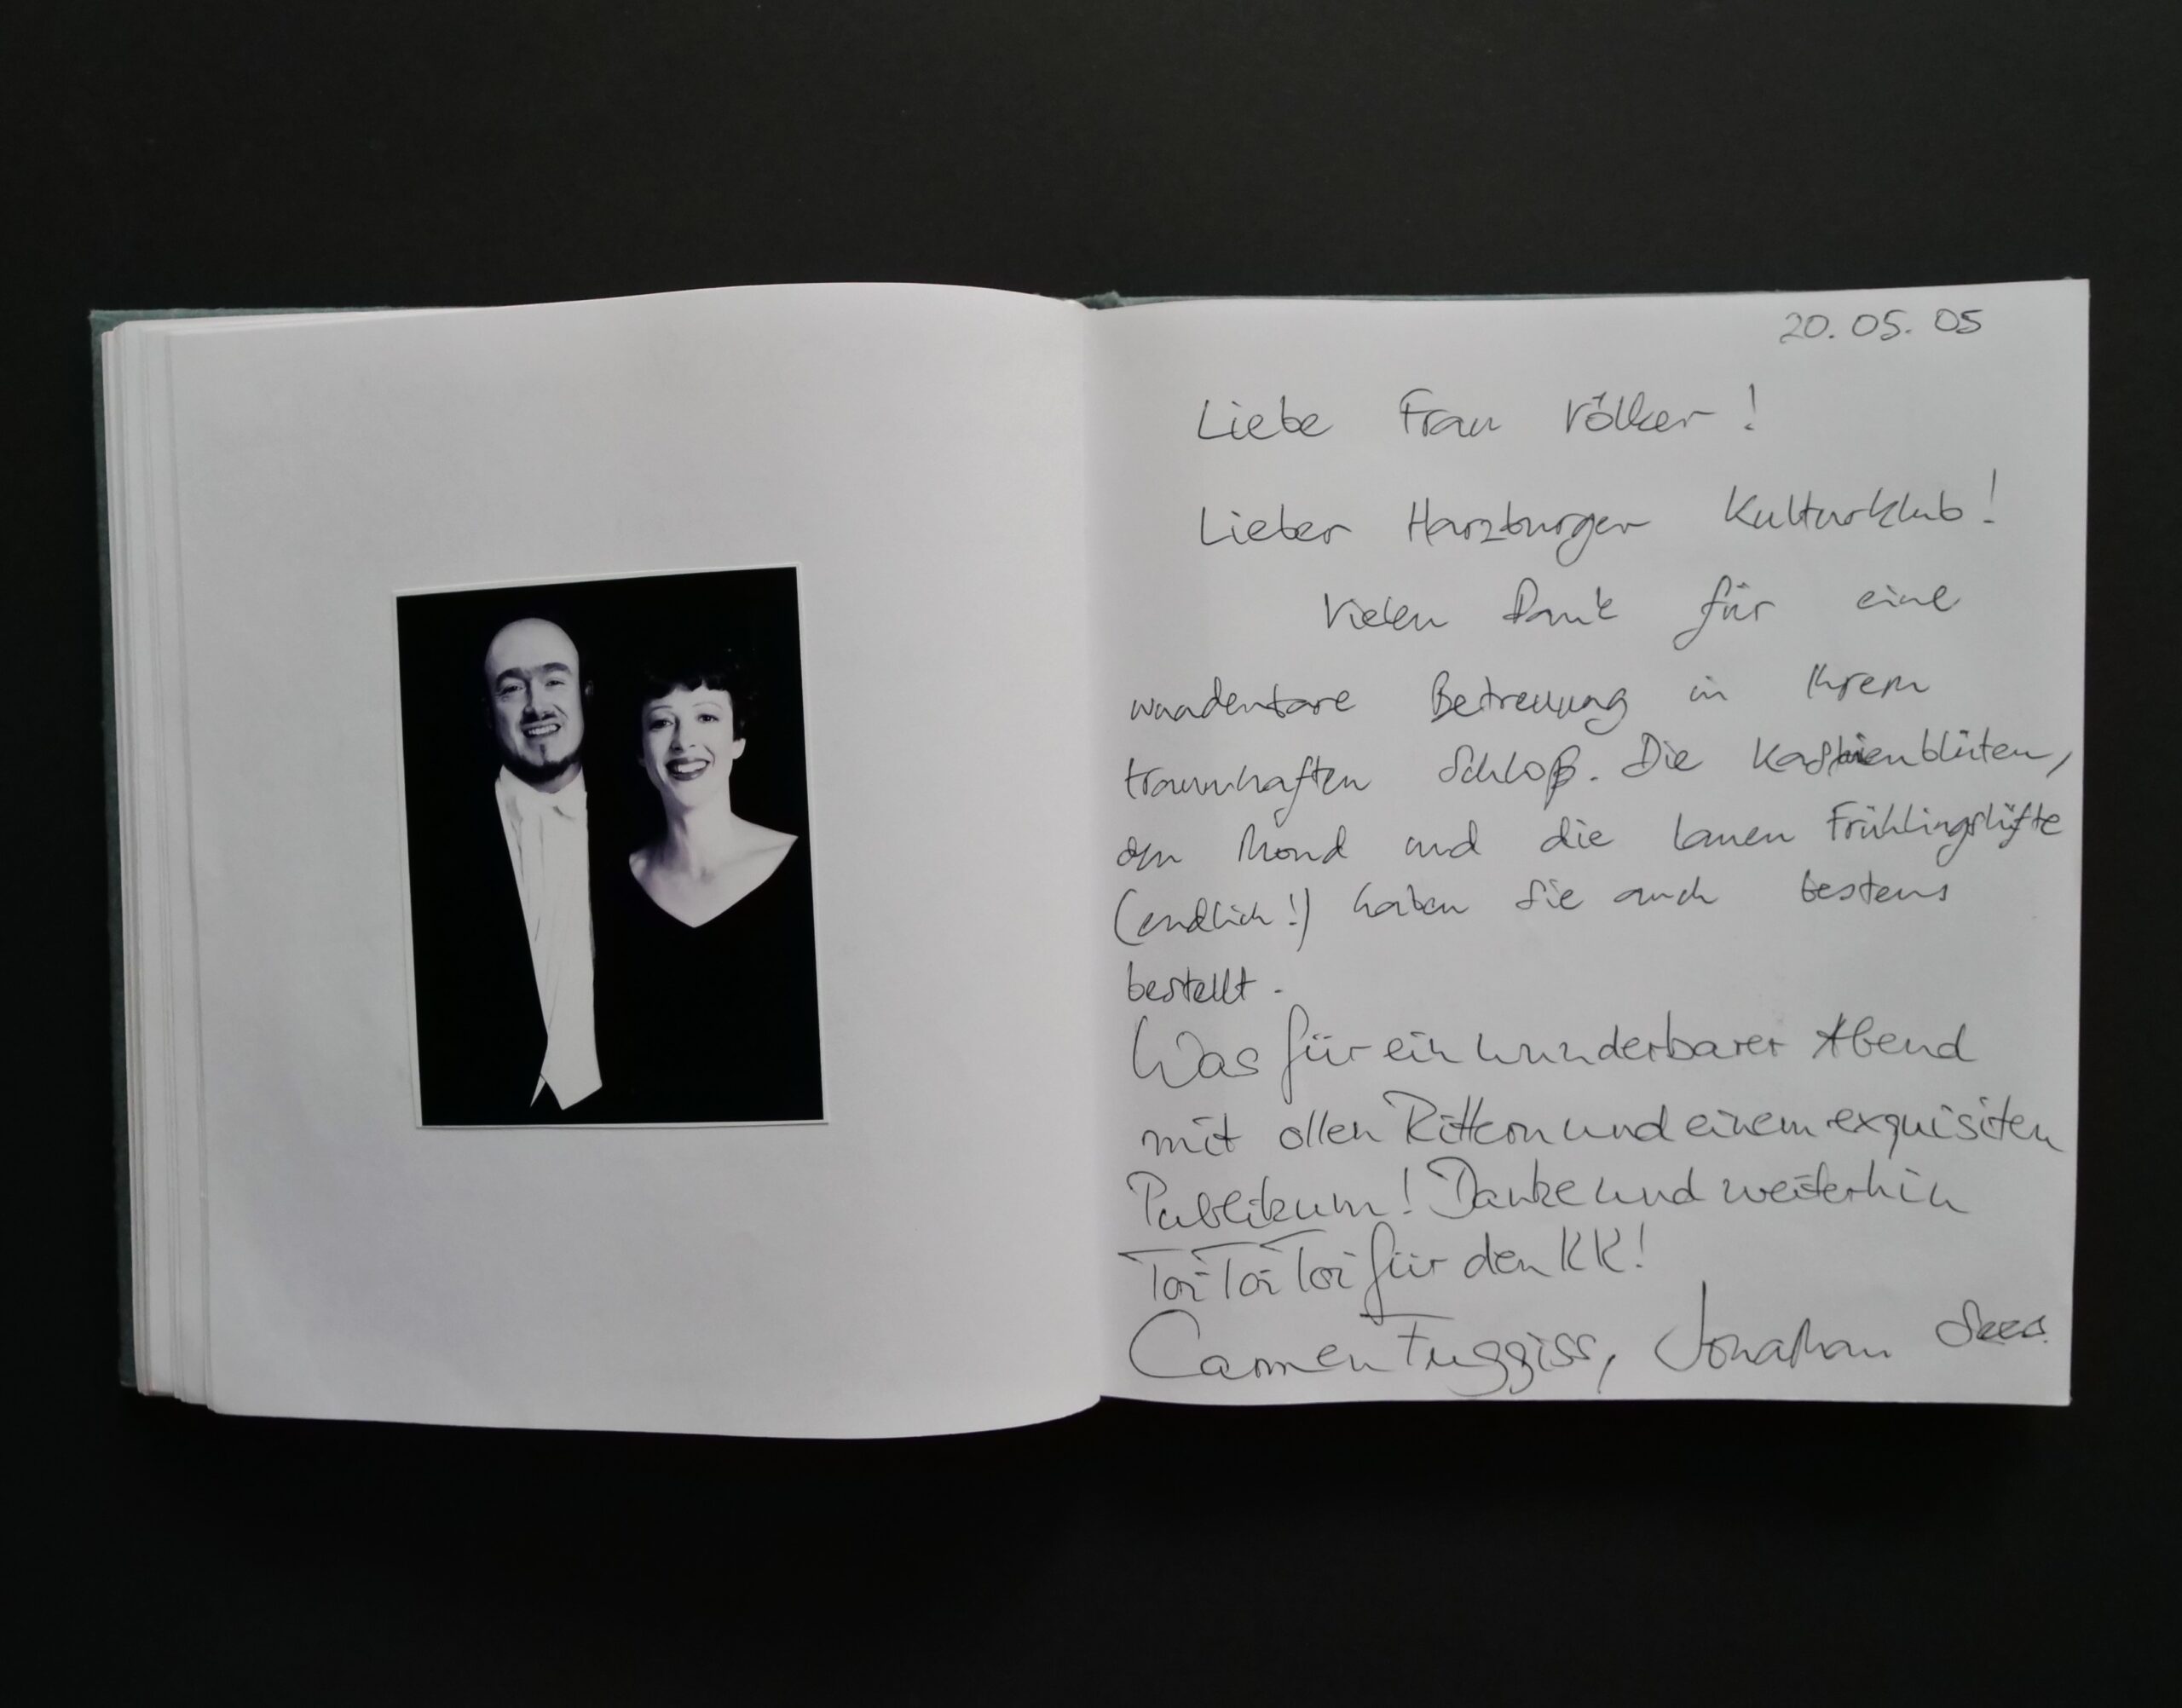 20.05.05
Liebe Frau Völker!
Lieber Harzburger Kulturklub!
Vielen Dank für eine
wunderbare Betreuung in Ihrem
traumhaften Schloß. Die Kastanienblüten,
den Mond und die lauen Frühlingslüfte
(endlich!) haben Sie auch bestens
bestellt.
Was für ein wunderbarer Abend
mit allen Rittern und einem exquisiten
Publikum! Danke und weiterhin
Toi Toi Toi für den KK!
Carmen Fuggiss, Jonathan